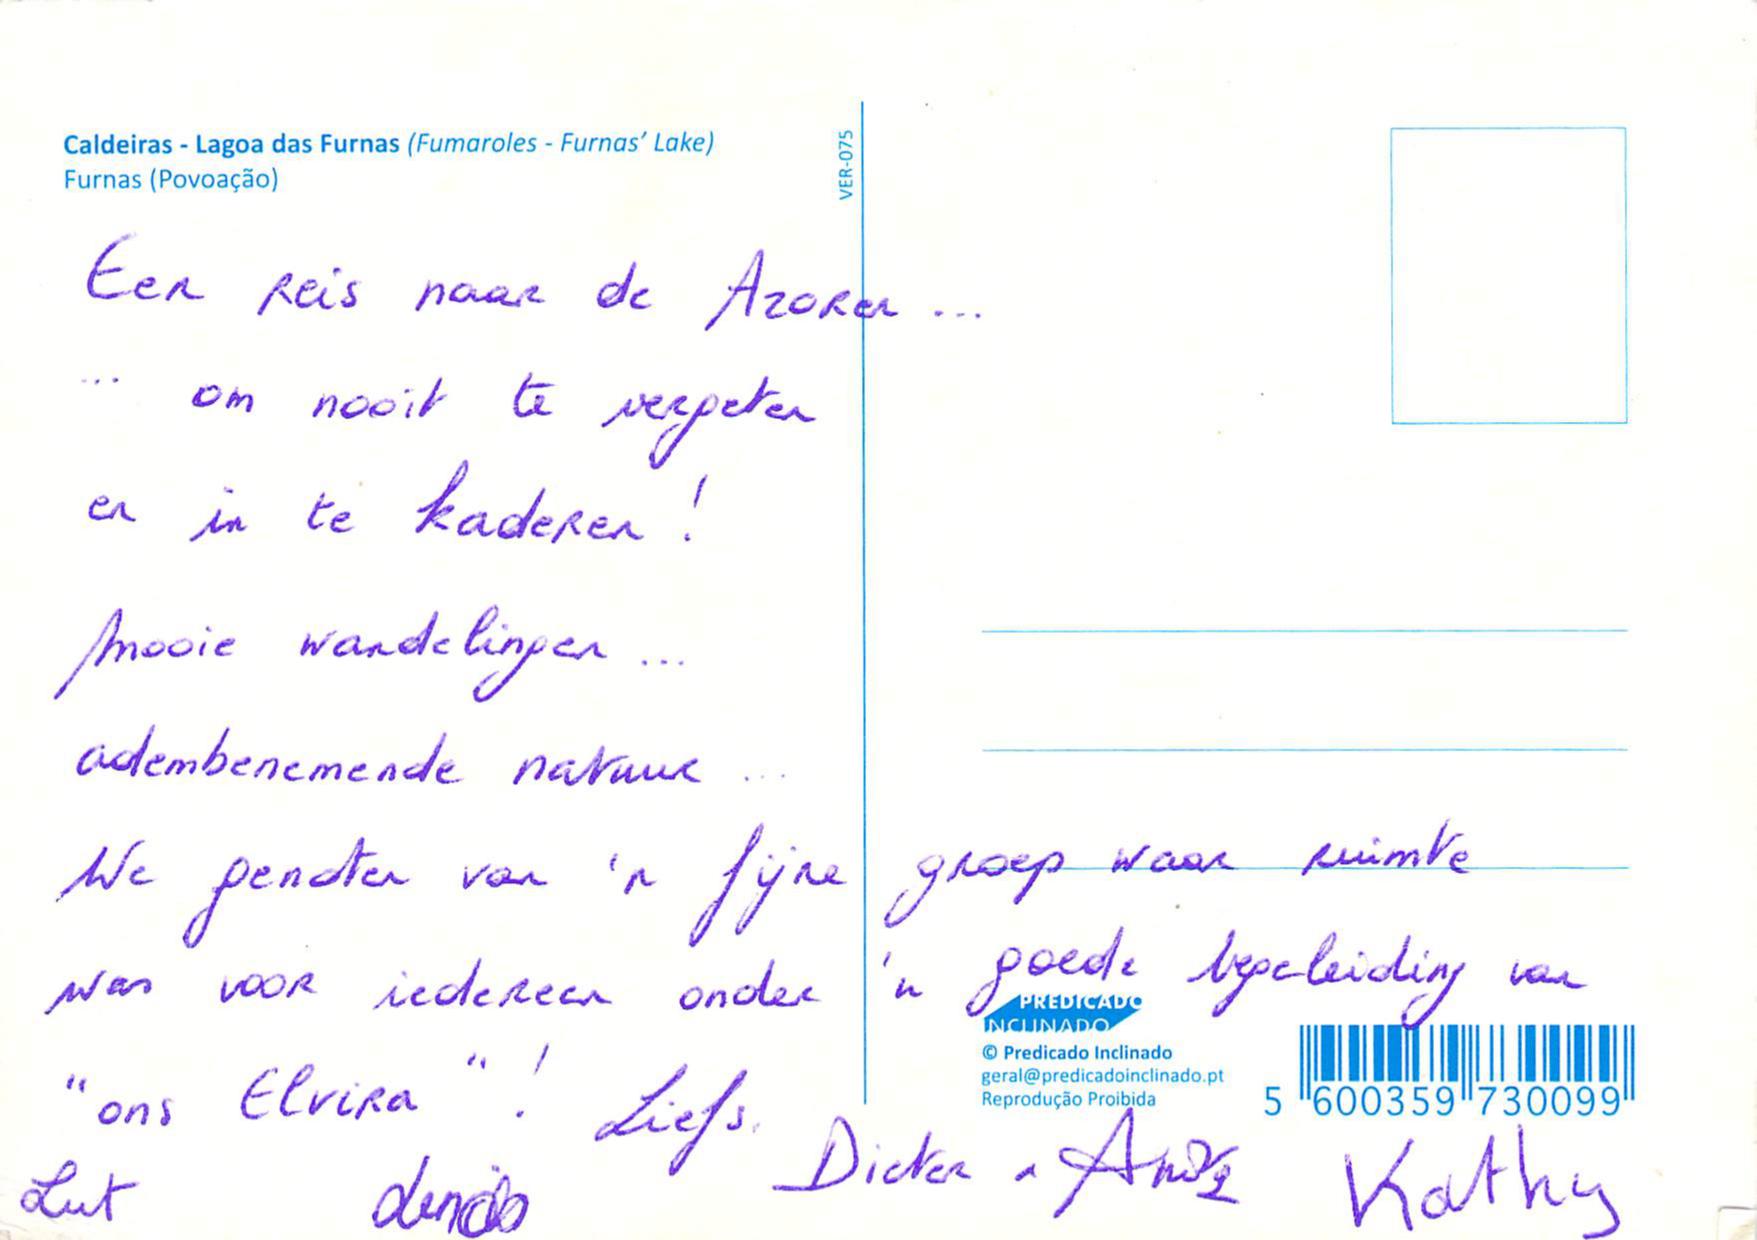 Caldeiras - Lagoa das Furnas (Fumaroles - Furnas' Lake)
Furnas (Povoação)
VER-075
Een reis naar de Azoren ...
... om nooit te vergeten
en in te kaderen !
Mooie wandelingen ...
adembenemende natuur ...
We genoten van 'n fijne groep waar ruimte
was voor iedereen onder 'n goede begeleiding van
"ons Elvira" ! Liefs.
Lut Dieter Kathy
PREDICADO
INCLINADO
© Predicado Inclinado
geral@predicadoinclinado.pt
Reprodução Proibida
5 600359 730099